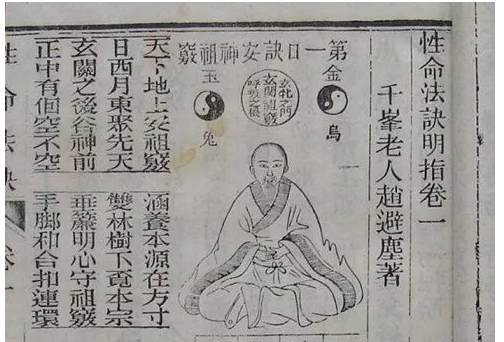 性命法訣明指卷一
千峯老人趙避塵著
第一口訣安神祖竅
金烏
玄牝之門
玄關祖竅
呼吸之根
玉兔
天下地上安祖竅 涵養本源在方寸
日西月東聚先天 雙林樹下覓本宗
玄關之後谷神前 垂簾明心守祖竅
正中有個空不空 手脚和合扣連環
性命法訣 卷一